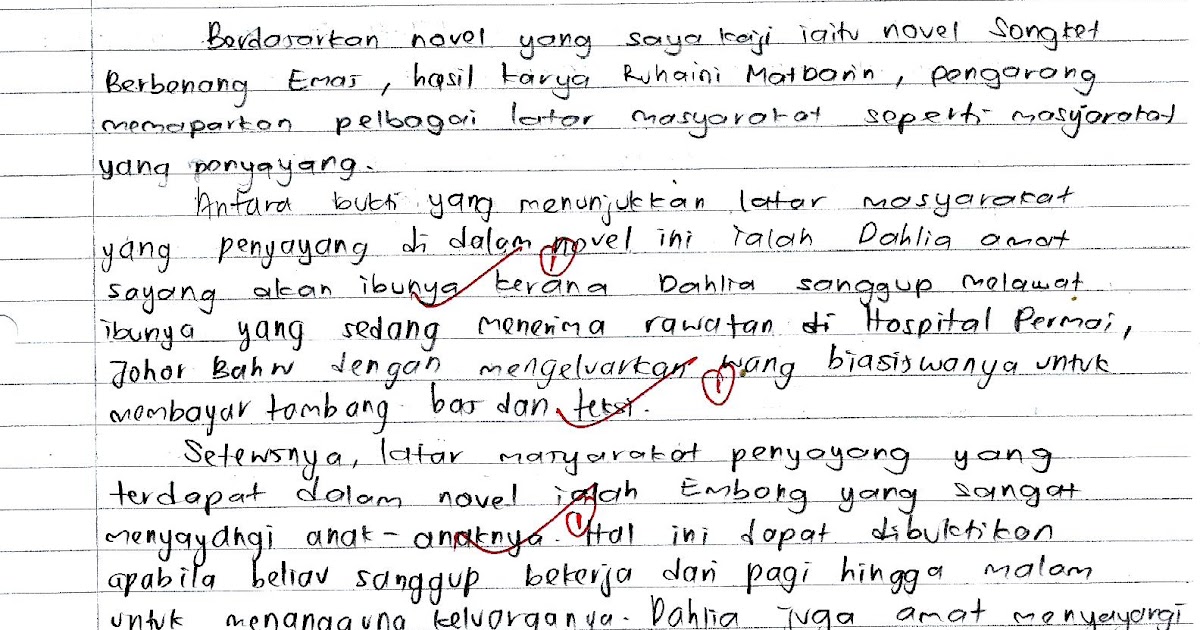 Berdasarkan novel yang saya kaji iaitu novel Songket
Berbenang Emas, hasil karya Ruhaini Matbarin, pengarang
memaparkan pelbagai latar masyarakat seperti masyarakat
yang penyayang.
Antara bukti yang menunjukkan latar masyarakat
yang penyayang di dalam novel ini ialah Dahlia amat
sayang akan ibunya kerana Dahlia sanggup melawat
ibunya yang sedang menerima rawatan di Hospital Permai,
Johor Bahru dengan mengeluarkan wang biasiswanya untuk
membayar tambang bas dan teksi.
Seterusnya, latar masyarakat penyayang yang
terdapat dalam novel ialah Embong yang sangat
menyayangi anak-anaknya. Hal ini dapat dibuktikan
apabila beliau sanggup bekerja dari pagi hingga malam
untuk menanggung keluarganya. Dahlia juga amat menyayangi